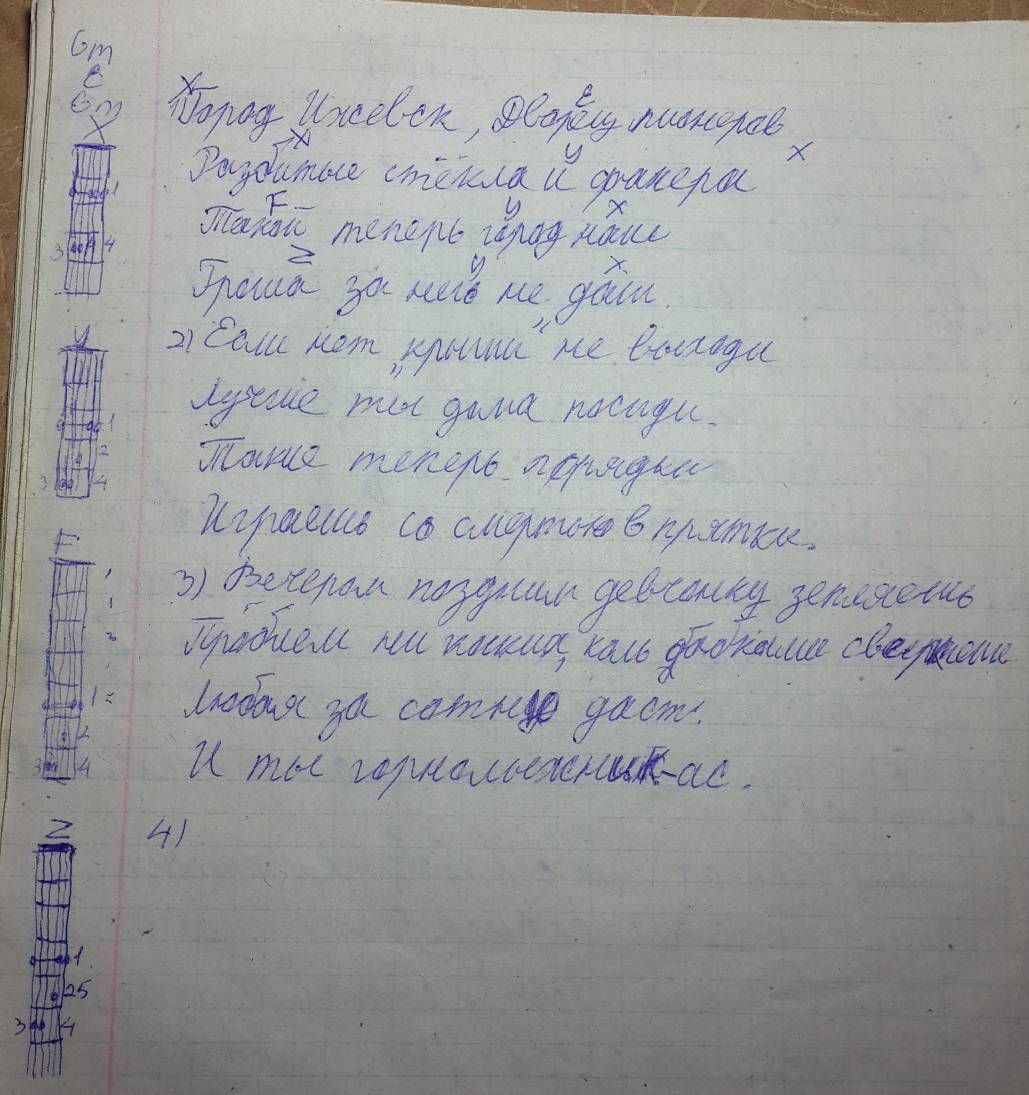 Gm
C
Gm
X
X
C
1) Город Ижевск, Дворец пионеров
X
У
X
Разбитые стёкла и фанера
F
У
X
Такой теперь город наш
Z
У
X
Гроша за него не даш.
2) Если нет "крыши" не выходи
Лучше ты дома посиди.
Такие теперь порядки
Играешь со смертью в прятки.
3) Вечером поздним девчонку зепляешь
Проблем ни каких, коль бабками
Любая за сотню даст.
И ты горнолыжник-ас.
4)
1
3 4
У
1
2
3 4
F
1
1
3
1
2
3 4
Z
1
25
3 4